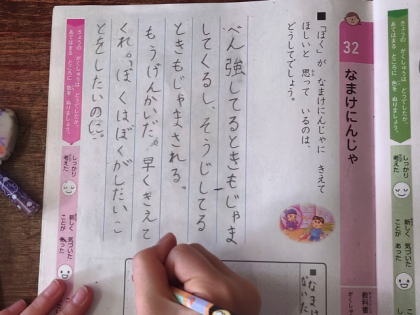 32
なまけにんじゃ
■「ぼく」が なまけにんじゃに きえて
ほしいと 思って いるのは、
どうしてでしょう。
べん強してるときもじゃま
してくるし、そうじしてる
ときもじゃまされる。
もうげんかいだ。早くきえて
くれ、ぼくはぼくがしたいこ
とをしたいのに。
きょうの がくしゅうは どうでしたか。
あてはまる ところに 色を ぬりましょう。
しっかり
考えた
新しく 気づいた
ことが あった
教科書